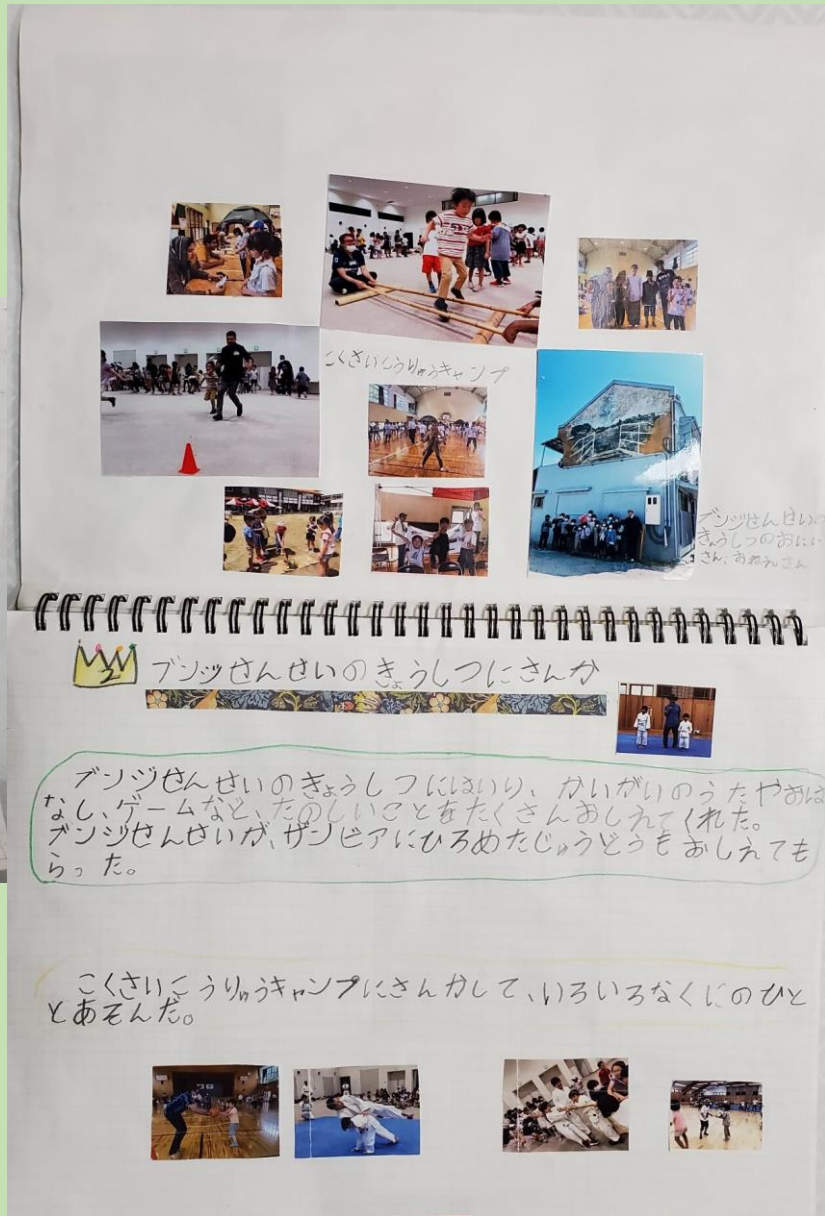 こくさいこうりゅうキャンプ
ブンジせんせいの
きょうしつのおにい
さん、おねえさん
2
ブンジせんせいのきょうしつにさんか
ブンジせんせいのきょうしつにはいり、かいがいのうたやおは
なし、ゲームなど、たのしいことをたくさんおしえてくれた。
ブンジせんせいが、ザンビアにひろめたじゅうどうもおしえても
らった。
こくさいこうりゅうキャンプにさんかして、いろいろなくにのひと
とあそんだ。